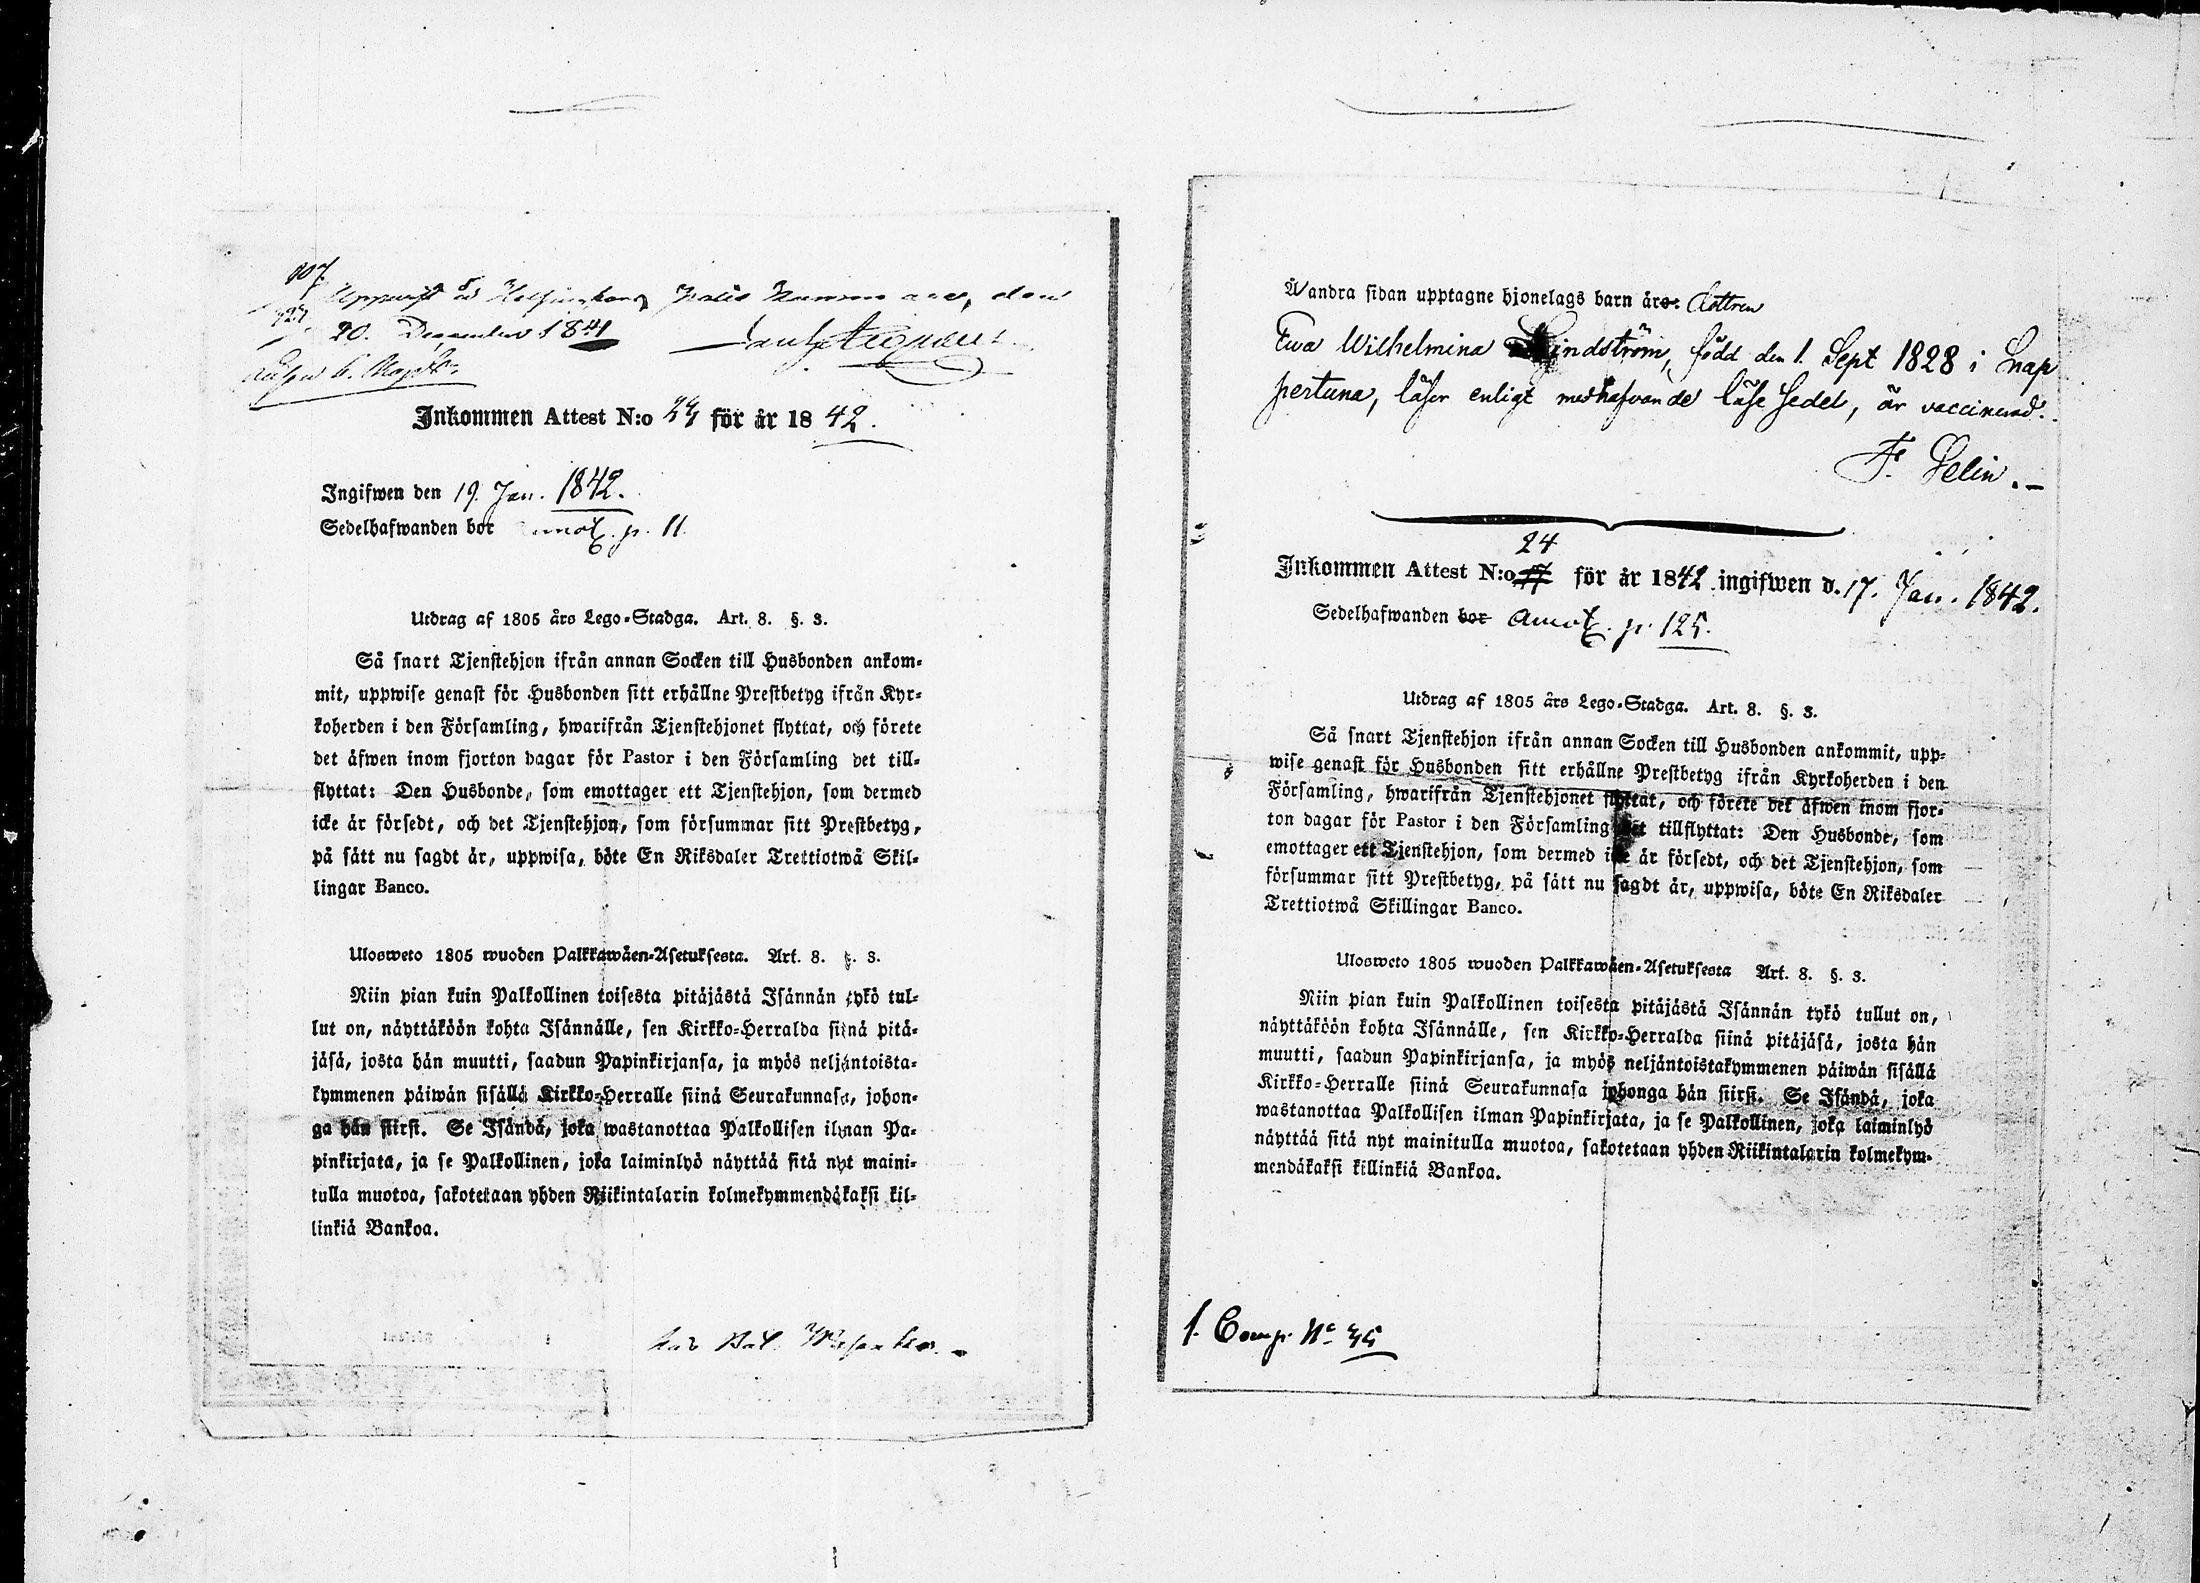 107.
20. December 1841
Inkommen Attest N:o för år 1842.
Ingifwen den 19. Jan. 1842.
Sedelhafwanden bor annot. p. 11.
Utdrag af 1805 års Lego-Stadga. Art. 8. §. 3.
Så snart Tjenstehjon ifrån annan Socken till Husbonden ankom-
mit, uppwise genast för Husbonden sitt erhållne Prestbetyg ifrån Kyr-
koherden i den Församling, hwarifrån Tjenstehjonet flyttat, och förete
det äfwen inom fjorton dagar för Pastor i den Församling det till-
flyttat: Den Husbonde, som emottager ett Tjenstehjon, som dermed
icke är försedt, och det Tjenstehjon, som försummar sitt Prestbetyg,
på sätt nu sagdt är, uppwisa, böte En Riksdaler Trettiotwå Skil-
lingar Banco.
Ulosweto 1805 wuoden Palkkawäen-Asetuksesta. Art. 8. §. 3.
Niin pian kuin Palkollinen toisesta pitäjästä Isännän tykö tul-
lut on, näyttäköön kohta Isännälle, sen Kirkko-Herralda siinä pitä-
jäsä, josta hän muutti, saadun Papinkirjansa, ja myös neljäntoista-
kymmenen päiwän sisällä Kirkko-Herralle siinä Seurakunnasa, johon-
ga hän siirsi. Se Isändä, joka wastanottaa Palkollisen ilman Pa-
pinkirjata, ja se Palkollinen, joka laiminlyö näyttää sitä nyt maini-
tulla muotoa, sakotetaan yhden Riikintalarin kolmekymmendäkaksi kil-
linkiä Bankoa.
Å andra sidan upptagne hjonelags barn äro: dottren
Ewa Wilhelmina Lindström, född den 1. Sept 1828 i Snap
pertuna, läser enligt medhafvande läse sedel, är vaccinerad.
F. Selin.
24
Inkommen Attest N:o för år 1842 ingifwen d. 17. Jan. 1842.
Sedelhafwanden bor annot. p. 125.
Utdrag af 1805 års Lego-Stadga. Art. 8. §. 3.
Så snart Tjenstehjon ifrån annan Socken till Husbonden ankommit, upp-
wise genast för Husbonden sitt erhållne Prestbetyg ifrån Kyrkoherden i den
Församling, hwarifrån Tjenstehjonet flyttat, och förete det äfwen inom fjor-
ton dagar för Pastor i den Församling det tillflyttat: Den Husbonde, som
emottager ett Tjenstehjon, som dermed icke är försedt, och det Tjenstehjon, som
försummar sitt Prestbetyg, på sätt nu sagdt är, uppwisa, böte En Riksdaler
Trettiotwå Skillingar Banco.
Ulosweto 1805 wuoden Palkkawäen-Asetuksesta Art. 8. §. 3.
Niin pian kuin Palkollinen toisesta pitäjästä Isännän tykö tullut on,
näyttäköön kohta Isännälle, sen Kirkko-Herralda siinä pitäjäsä, josta hän
muutti, saadun Papinkirjansa, ja myös neljäntoistakymmenen päiwän sisällä
Kirkko-Herralle siinä Seurakunnasa johonga hän siirsi. Se Isändä, joka
wastanottaa Palkollisen ilman Papinkirjata, ja se Palkollinen, joka laiminlyö
näyttää sitä nyt mainitulla muotoa, sakotetaan yhden Riikintalarin kolmekym-
mendäkaksi killinkiä Bankoa.
1. Comp. No 35